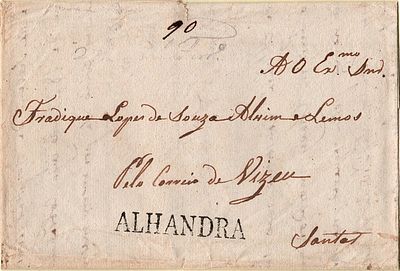 90
AO Ex.mo Snr.
Fradique Lopes de Souza Alvim e Lemos
Pelo Correio de Vizeu
ALHANDRA
Santar